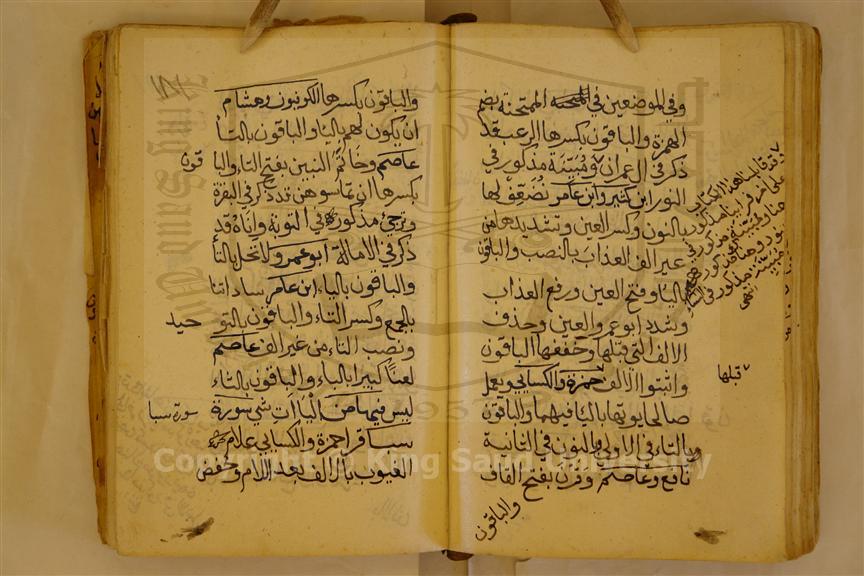 وفي الموضعين في الممتحنة بضم
الهمزة والباقون بكسرها الرعب قد
ذكر في ال عمران ومبينة مذكور في
النور ابن كثير وابن عامر نضعف لها
بالنون وكسر العين وتشديدها من
غير الف العذاب بالنصب والباقون
بالياء وفتح العين ورفع العذاب
وشدد ابو عمرو العين وحذف
الالف التي قبلها وخففها الباقون
واثبتوا الالف حمزة والكسائي ويعمل
صالحا يوتها بالياء فيهما والباقون
بالتاء في الاولى وبالنون في الثانية
نافع وعاصم وقرن بفتح القاف
والباقون
قبلها
والباقون بكسرها الكوفيون وهشام
ان يكون لهم بالياء والباقون بالتاء
عاصم وخاتم النبين بفتح التاء والباقون
بكسرها ان تماسوهن قد ذكر في البقرة
وترجئ مذكور في التوبة واناه قد
ذكر في الامالة ابو عمرو لا تحل بالتاء
والباقون بالياء ابن عامر ساداتنا
بالجمع وكسر التاء والباقون بالتوحيد
ونصب التاء من غير الف عاصم
لعنا كبيرا بالباء والباقون بالثاء
ليس فيها من الياءات شي سورة
سورة سبا
سبا قرا حمزة والكسائي علام
الغيوب بالالف بعد اللام وخفض
Copyright © King Saud University
King Saud University
1957